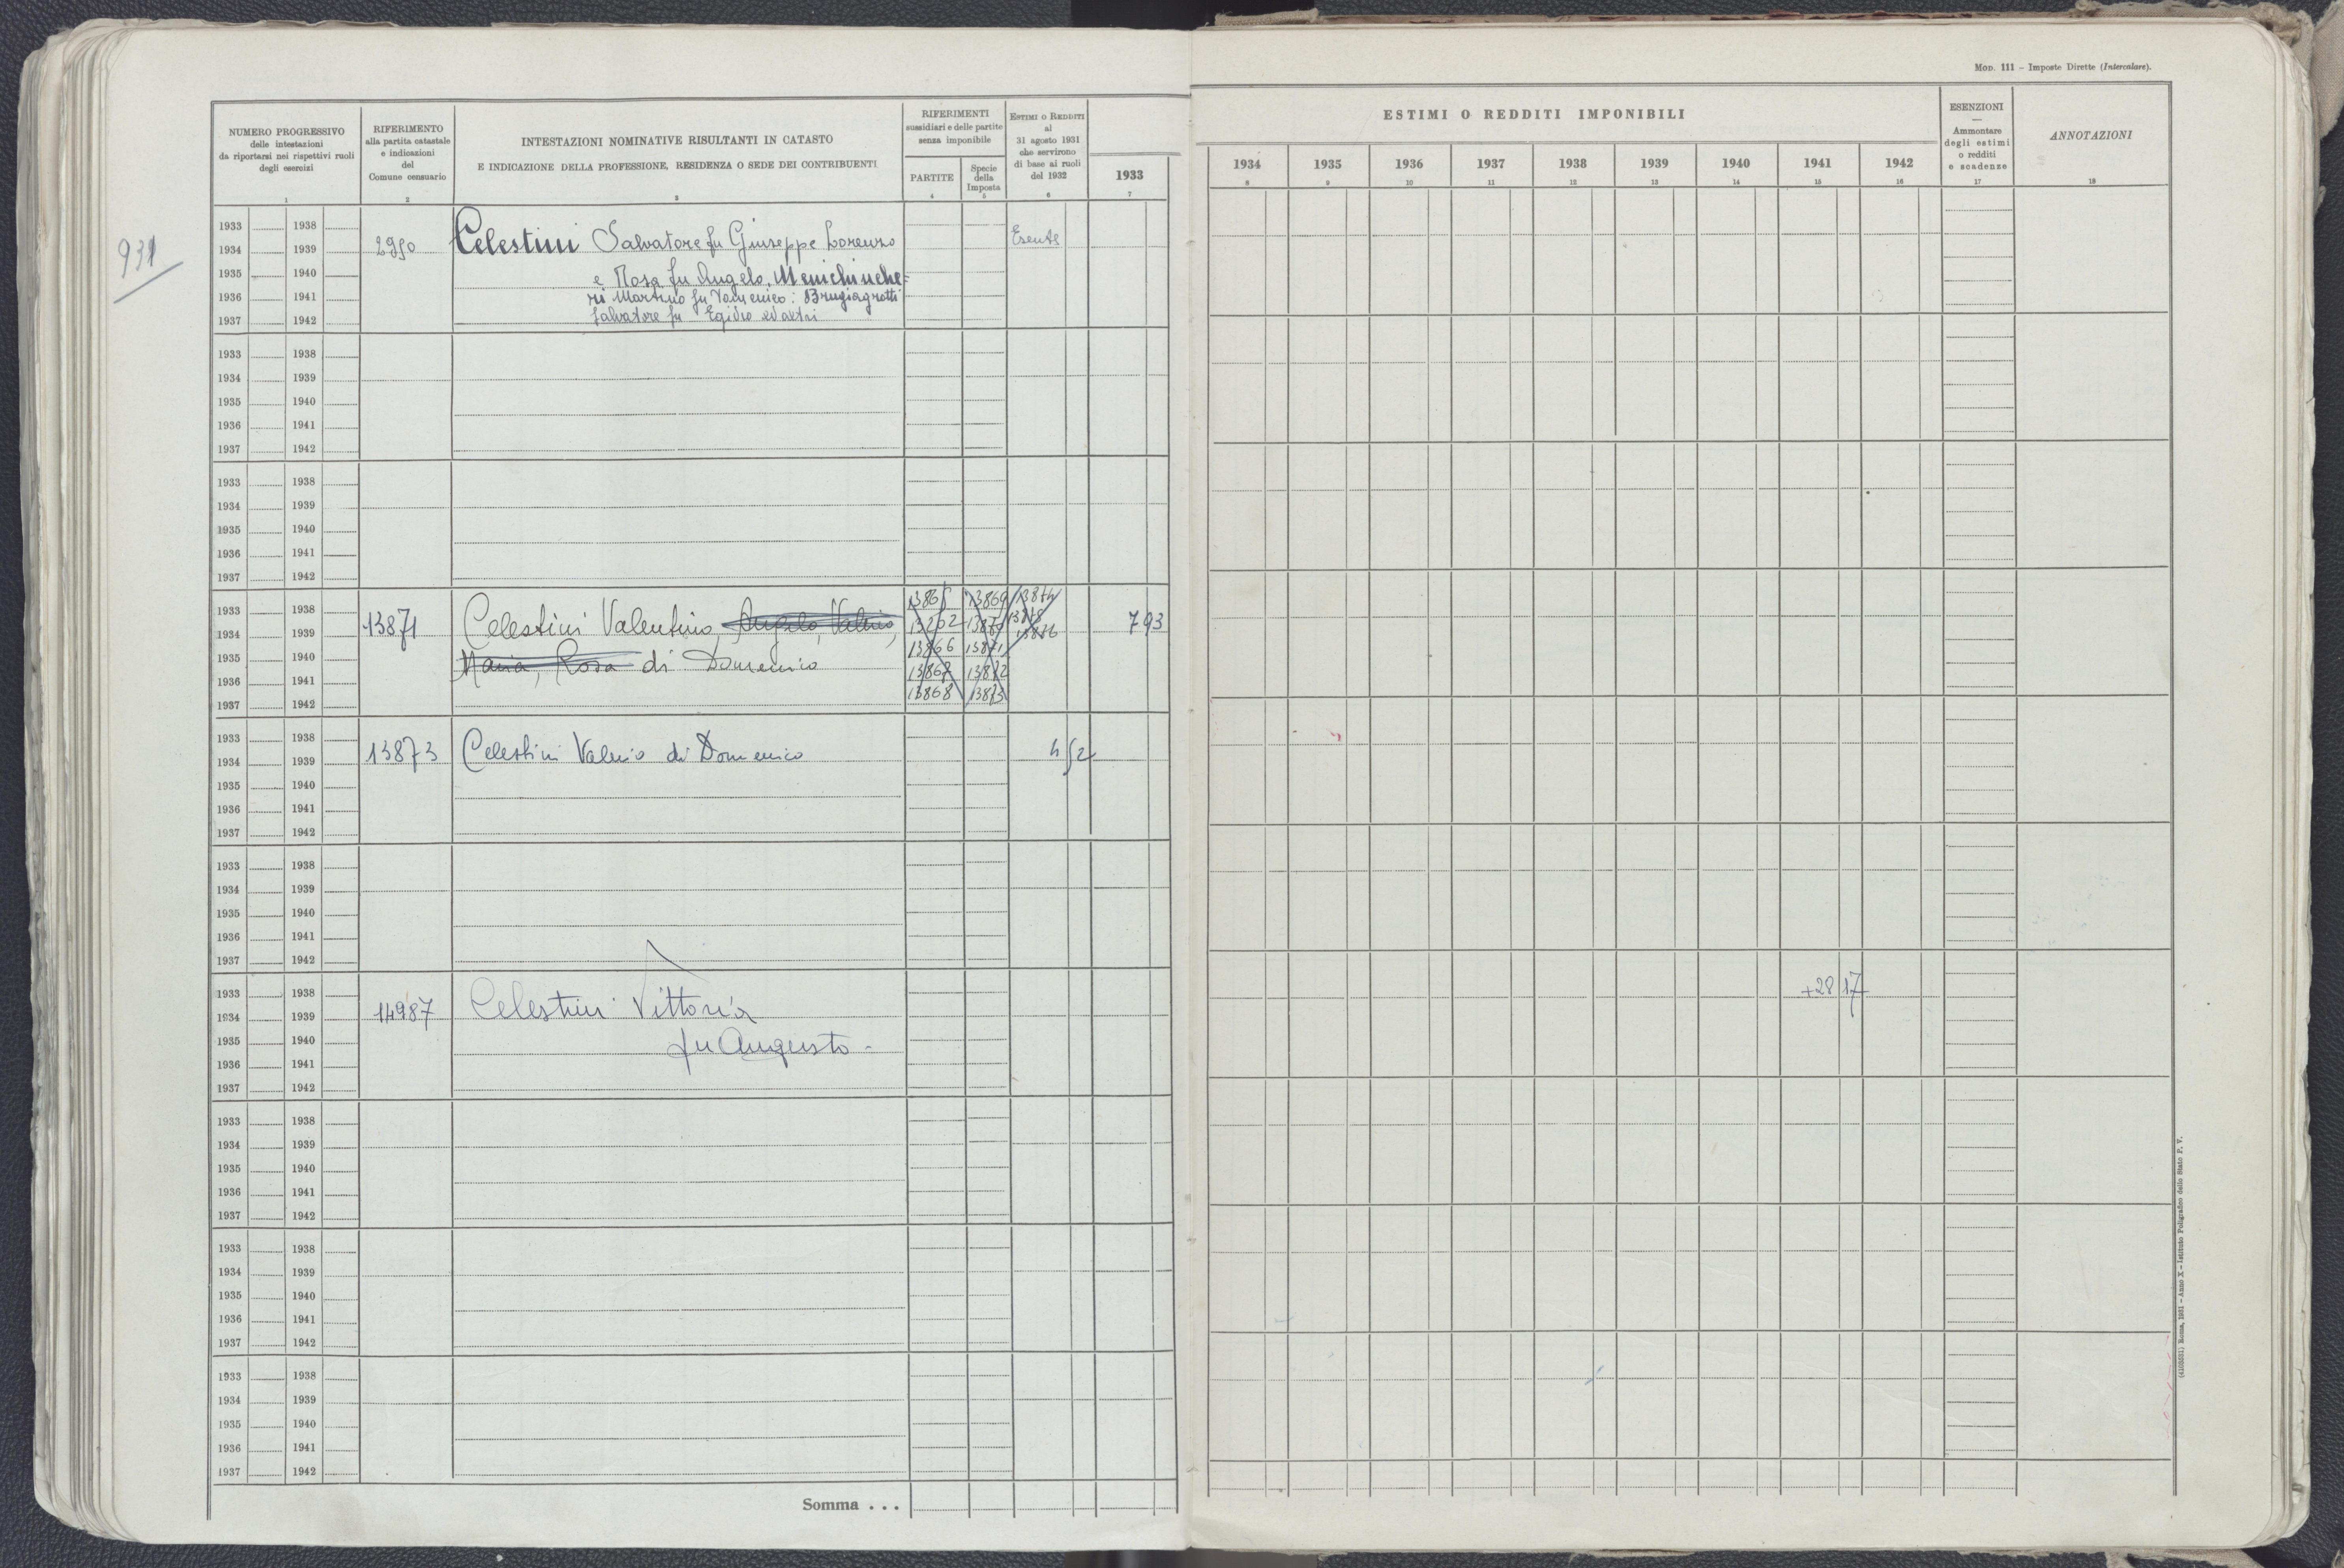 MOD. 111 – Imposte Dirette (Intercalare).
NUMERO PROGRESSIVO
delle intestazioni
da riportarsi nei rispettivi ruoli
degli esercizi
1
RIFERIMENTO
alla partita catastale
e indicazioni
del
Comune censuario
2
INTESTAZIONI NOMINATIVE RISULTANTI IN CATASTO
E INDICAZIONE DELLA PROFESSIONE, RESIDENZA O SEDE DEI CONTRIBUENTI
3
RIFERIMENTI
sussidiari e delle partite
senza imponibile
PARTITE
4
Specie
della
Imposta
5
ESTIMI O REDDITI
al
31 agosto 1931
che servirono
di base ai ruoli
del 1932
6
1933
7
ESTIMI O REDDITI IMPONIBILI
1934 1935 1936 1937 1938 1939 1940 1941 1942
8 9 10 11 12 13 14 15 16
ESENZIONI
—
Ammontare
degli estimi
o redditi
e scadenze
17
ANNOTAZIONI
18
931
1933 1938
1934 1939 2950 Celestini Salvatore fu Giuseppe Lorenzo Esente
1935 1940 e Rosa fu Angelo, Menichinche=
1936 1941 ri Martino fu Domenico: Brugiagrotti
1937 1942 Salvatore fu Egidio ed altri
1933 1938
1934 1939
1935 1940
1936 1941
1937 1942
1933 1938
1934 1939
1935 1940
1936 1941
1937 1942
1933 1938 13865 13869 13874
1934 1939 13871 Celestini Valentino, Angelo, Valerio, 13202 793
1935 1940 Maria, Rosa di Domenico 13866 13871
1936 1941 13867 13872
1937 1942 13868 13873
1933 1938
1934 1939 13873 Celestini Valerio di Domenico 4 52
1935 1940
1936 1941
1937 1942
1933 1938
1934 1939
1935 1940
1936 1941
1937 1942
1933 1938
1934 1939 14987 Celestini Vittoria +28 17
1935 1940 fu Augusto -
1936 1941
1937 1942
1933 1938
1934 1939
1935 1940
1936 1941
1937 1942
1933 1938
1934 1939
1935 1940
1936 1941
1937 1942
1933 1938
1934 1939
1935 1940
1936 1941
1937 1942
Somma . . .
(4103531) Roma, 1931 – Anno X – Istituto Poligrafico dello Stato P. V.